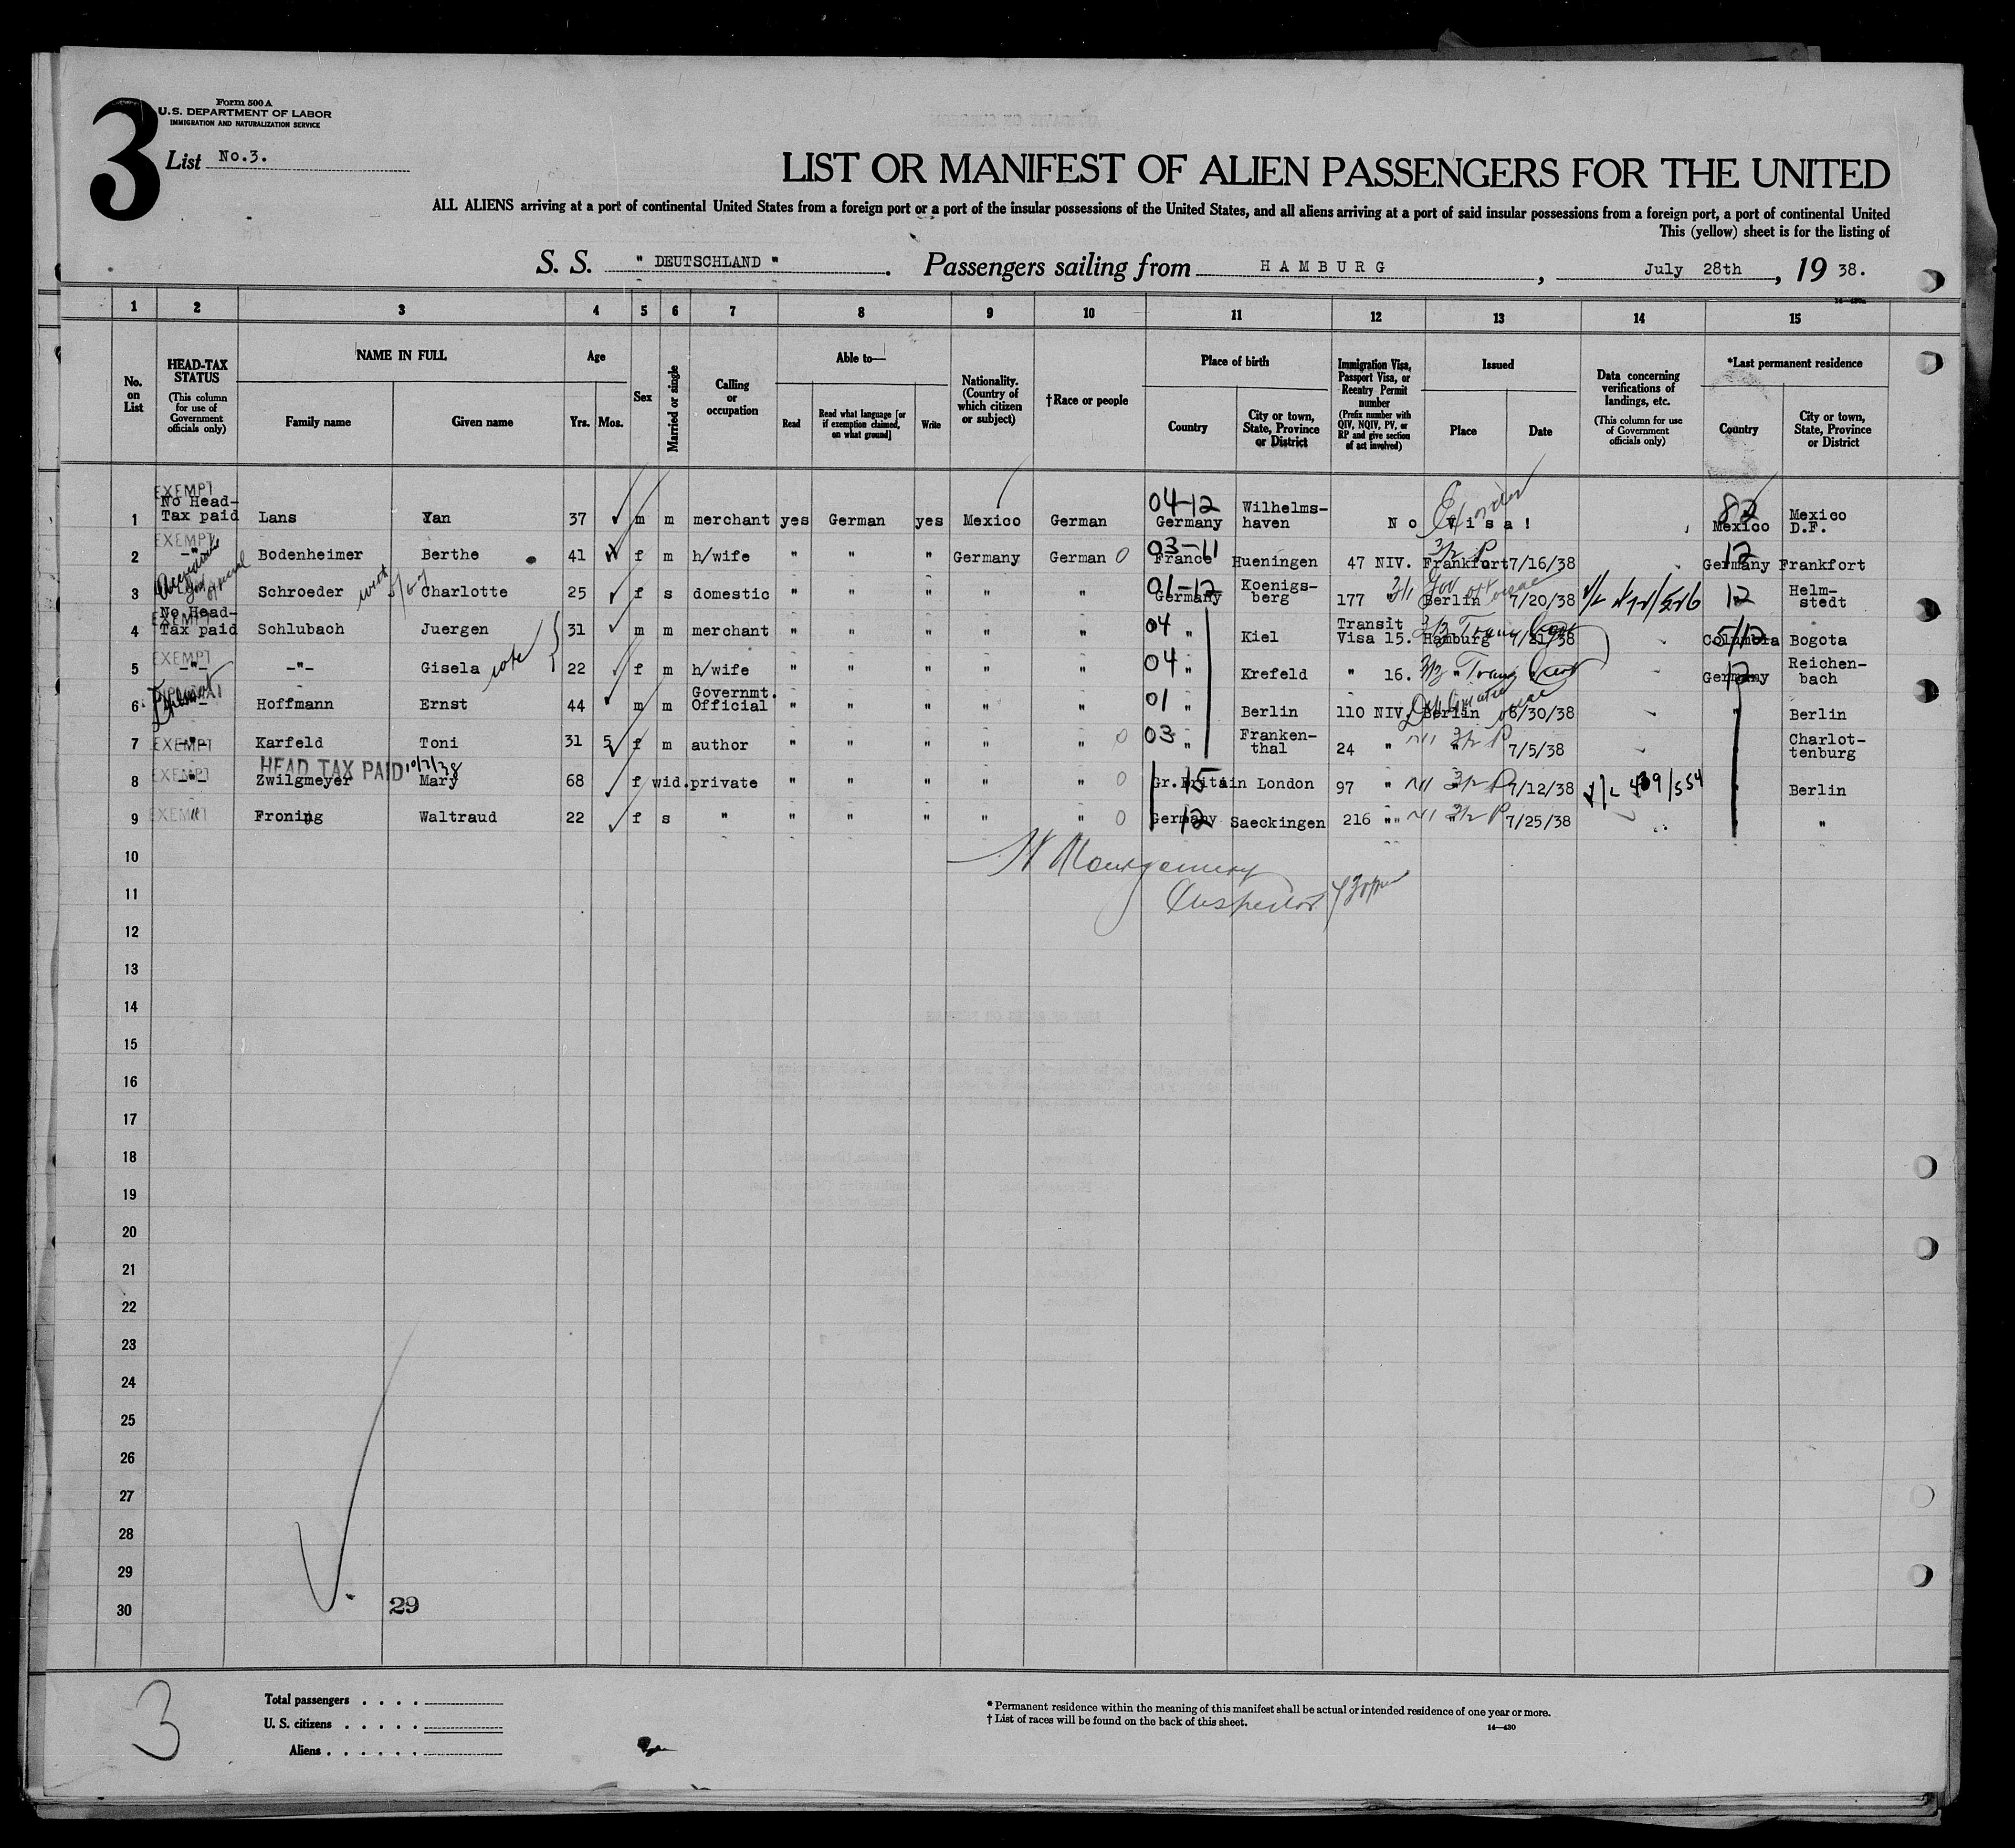 3
Form 500 A
U.S. DEPARTMENT OF LABOR
IMMIGRATION AND NATURALIZATION SERVICE
List No.3.
LIST OR MANIFEST OF ALIEN PASSENGERS FOR THE UNITED
ALL ALIENS arriving at a port of continental United States from a foreign port or a port of the insular possessions of the United States, and all aliens arriving at a port of said insular possessions from a foreign port, a port of continental United
This (yellow) sheet is for the listing of
S. S. " DEUTSCHLAND " . Passengers sailing from HAMBURG , July 28th , 19 38.
1 2 3 4 5 6 7 8 9 10 11 12 13 14 15
No. on List
HEAD-TAX STATUS (This column for use of Government officials only)
NAME IN FULL Family name Given name
Age Yrs. Mos.
Sex
Married or single
Calling or occupation
Able to— Read Read what language [or if exemption claimed, on what ground] Write
Nationality. (Country of which citizen or subject)
†Race or people
Place of birth Country City or town, State, Province or District
Immigration Visa, Passport Visa, or Reentry Permit number (Prefix number with QIV, NQIV, PV, or RP and give section of act involved)
Issued Place Date
Data concerning verifications of landings, etc. (This column for use of Government officials only)
*Last permanent residence Country City or town, State, Province or District
1 EXEMPT No Head-Tax paid Lans Yan 37 m m merchant yes German yes Mexico German 04-12 Germany Wilhelms-haven No Visa! 82 Mexico Mexico D.F.
2 EXEMPT -"- Bodenheimer Berthe 41 f m h/wife " " " Germany German 0 03-11 France Hueningen 47 NIV. 3/2 P Frankfort 7/16/38 12 Germany Frankfort
3 Schroeder Charlotte 25 f s domestic " " " " " 01-12 Germany Koenigs-berg 177 " Berlin 7/20/38 12 " Helm-stedt
4 No Head-Tax paid EXEMPT Schlubach Juergen 31 m m merchant " " " " " 04 " Kiel Transit Visa 15. Hamburg 7/21/38 Columbia Bogota
5 EXEMPT -"- -"- Gisela 22 f m h/wife " " " " " 04 " Krefeld " 16. " " 12 Germany Reichen-bach
6 Hoffmann Ernst 44 m m Governmt. Official " " " " " 01 " Berlin 110 NIV. Berlin 6/30/38 " Berlin
7 EXEMPT -"- Karfeld Toni 31 5 f m author " " " " " 0 03 " Franken-thal 24 " " 3/2 P 7/5/38 Charlot-tenburg
HEAD TAX PAID 10/7/38
8 EXEMPT -"- Zwilgmeyer Mary 68 f wid. private " " " " " 0 15 Gr.Britain London 97 " " 3/2 P 7/12/38 Berlin
9 EXEMPT " Froning Waltraud 22 f s " " " " " " 0 12 Germany Saeckingen 216 " " 3/2 P 7/25/38 "
10
Montgomery
11
Inspector
12
13
14
15
16
17
18
19
20
21
22
23
24
25
26
27
28
29
30
29
3
Total passengers . . . .
U. S. citizens . . . . .
Aliens . . . . . .
* Permanent residence within the meaning of this manifest shall be actual or intended residence of one year or more.
† List of races will be found on the back of this sheet.
14—430